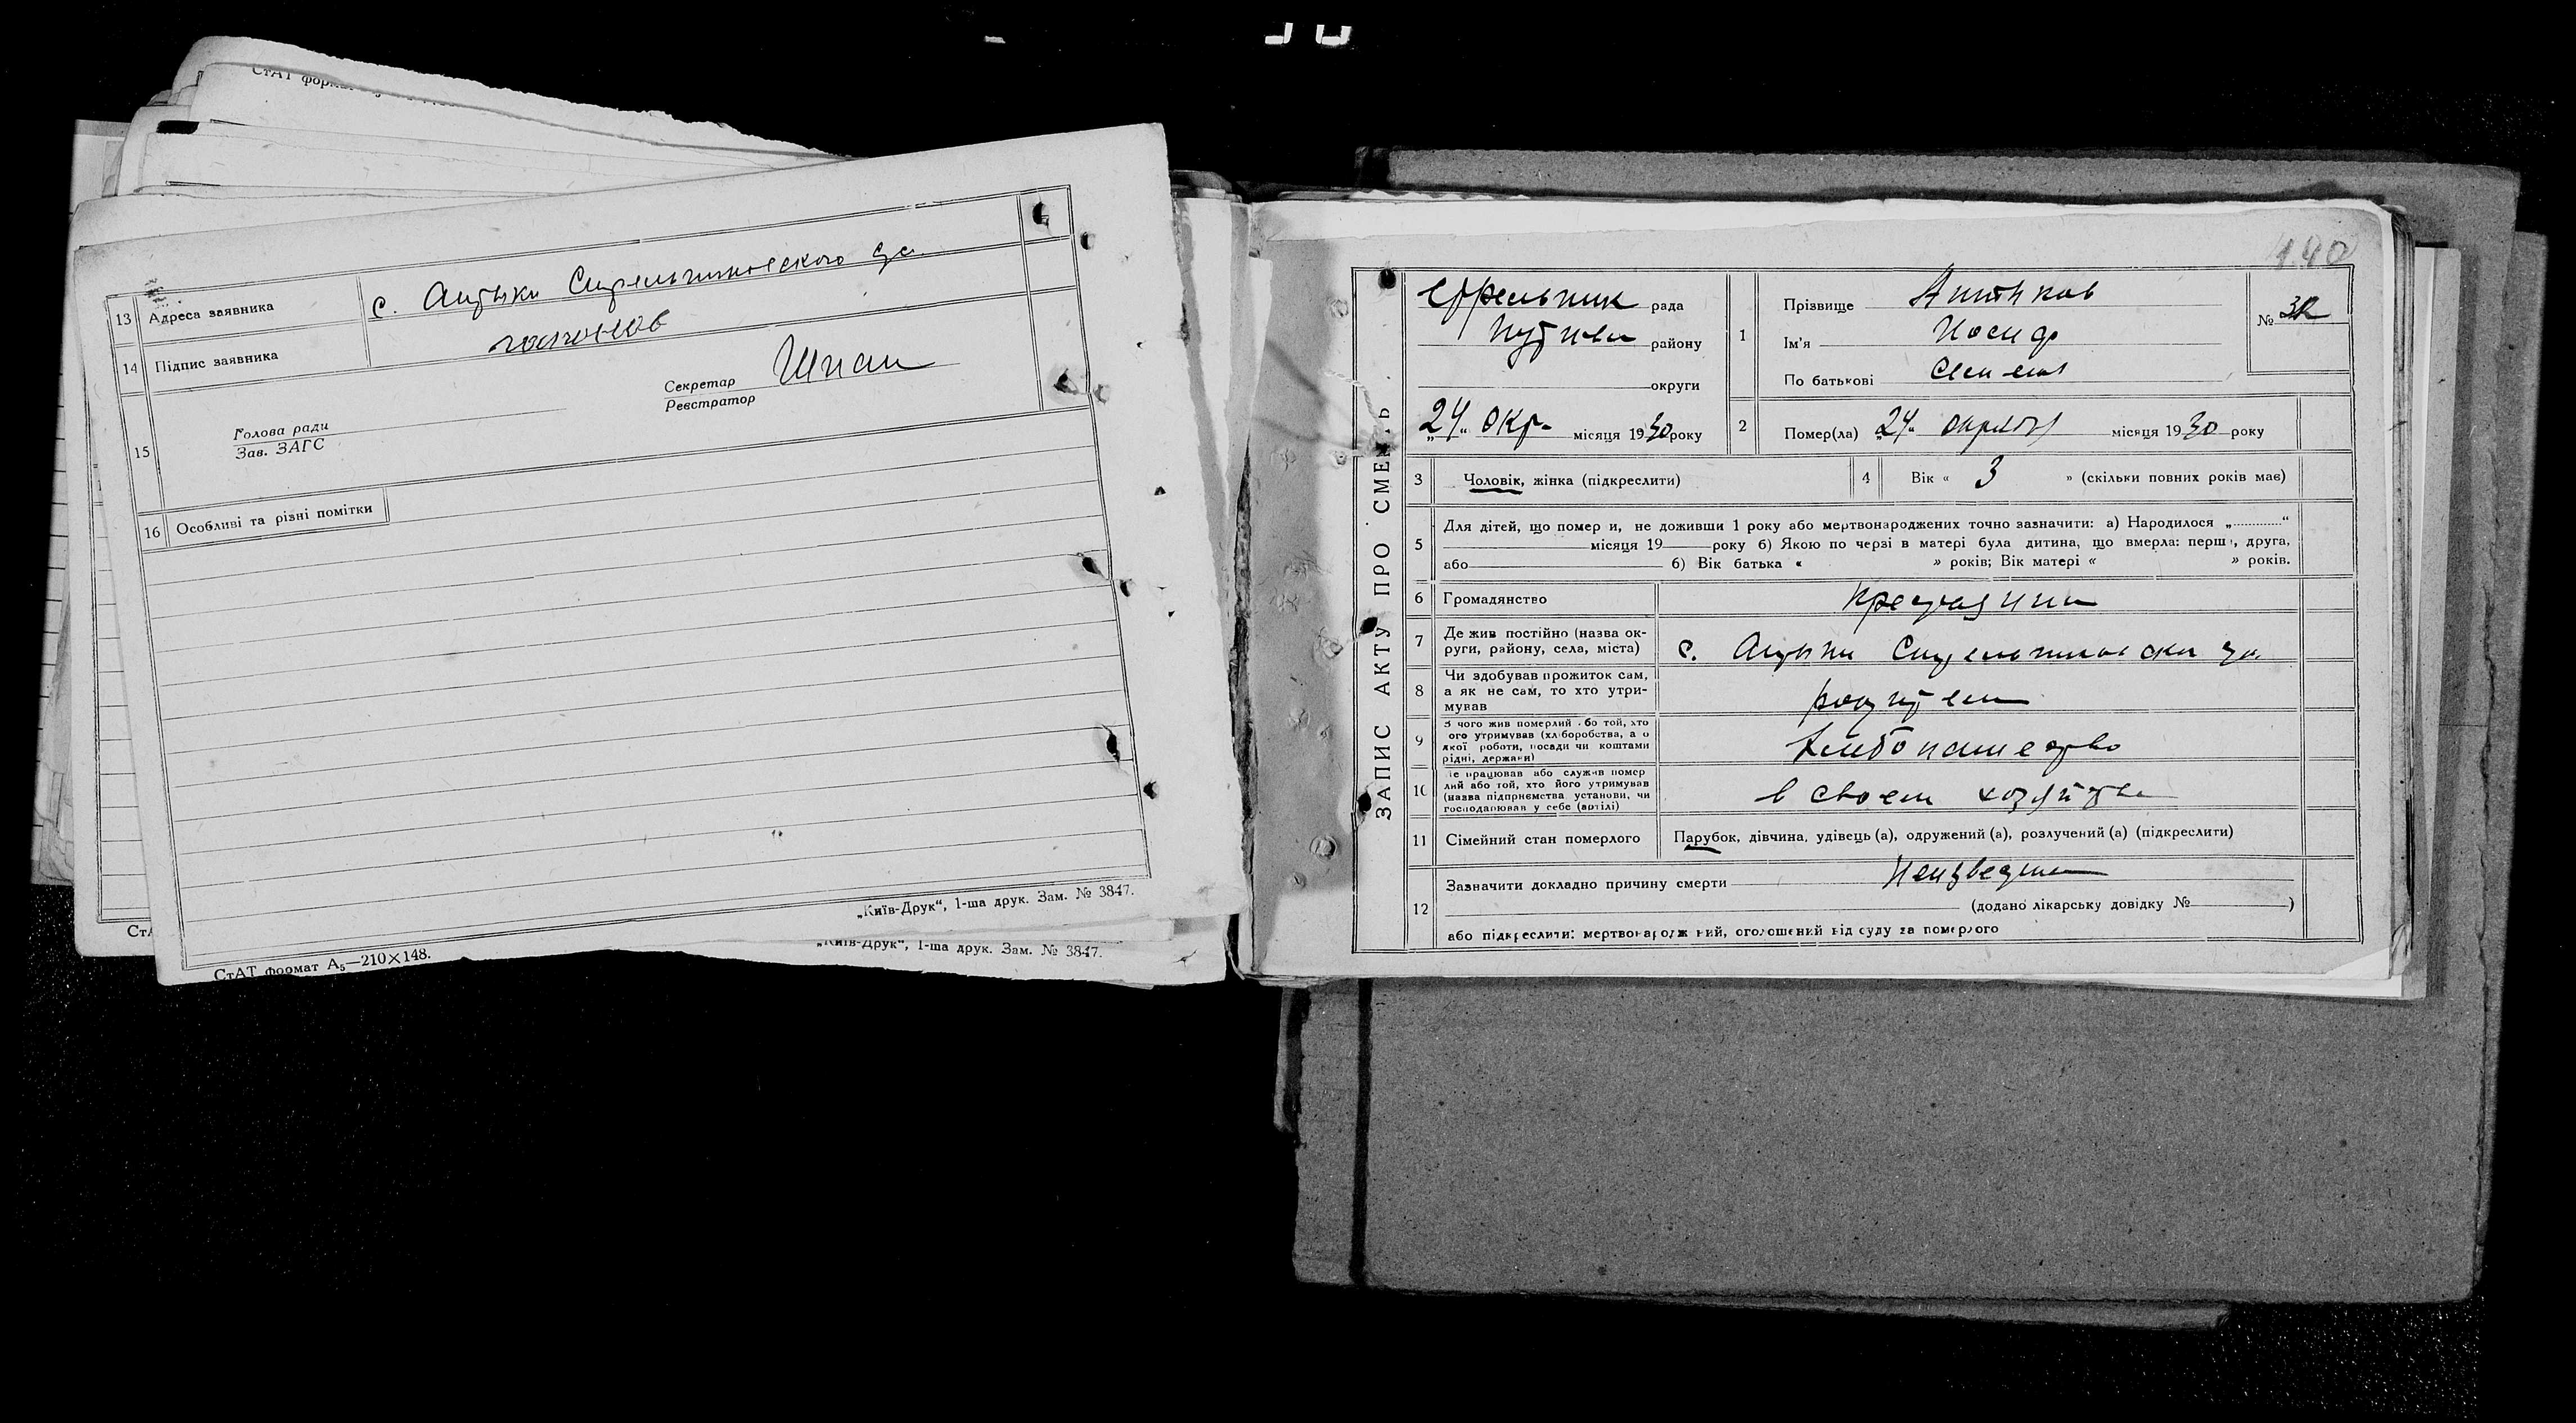 СтАТ форм
13 Адреса заявника с. Ацыки Стрельниковского
14 Підпис заявника
15 Голова ради
Зав. ЗАГС
Секретар
Реєстратор
16 Особливі та різні помітки
„Київ-Друк“, 1-ша друк. Зам. № 3847.
СтАТ формат А5—210×148.
„Київ-Друк“, 1-ша друк. Зам. № 3847.
140
ЗАПИС АКТУ ПРО СМЕРТЬ
Стрельник рада
Путивл району
округи
„24“ окт. місяця 1930 року
1 Прізвище
Ім'я Иосиф
По батькові Семен
№
2 Помер(ла) „24“ октября місяця 1930 року
3 Чоловік, жінка (підкреслити)
4 Вік « 3 » (скільки повних років має)
5 Для дітей, що померли, не доживши 1 року або мертвонароджених точно зазначити: а) Народилося „............“
місяця 19 року б) Якою по черзі в матері була дитина, що вмерла: перша, друга,
або б) Вік батька « » років; Вік матері « » років.
6 Громадянство
7 Де жив постійно (назва ок-
руги, району, села, міста) с. Ацыки
8 Чи здобував прожиток сам,
а як не сам, то хто утри-
мував родител
9 З чого жив померлий або той, хто
його утримував (хліборобства, а о
якої роботи, посади чи коштами
рідні, держави) хлебопашество
10 Де працював або служив помер
лий або той, хто його утримував
(назва підприємства установи, чи
господарював у себе (артілі) в своем хозяйстве
11 Сімейний стан померлого Парубок, дівчина, удівець (а), одружений (а), розлучений (а) (підкреслити)
12 Зазначити докладно причину смерти
(додано лікарську довідку № )
або підкреслити: мертвонароджений, оголошений від суду за померлого